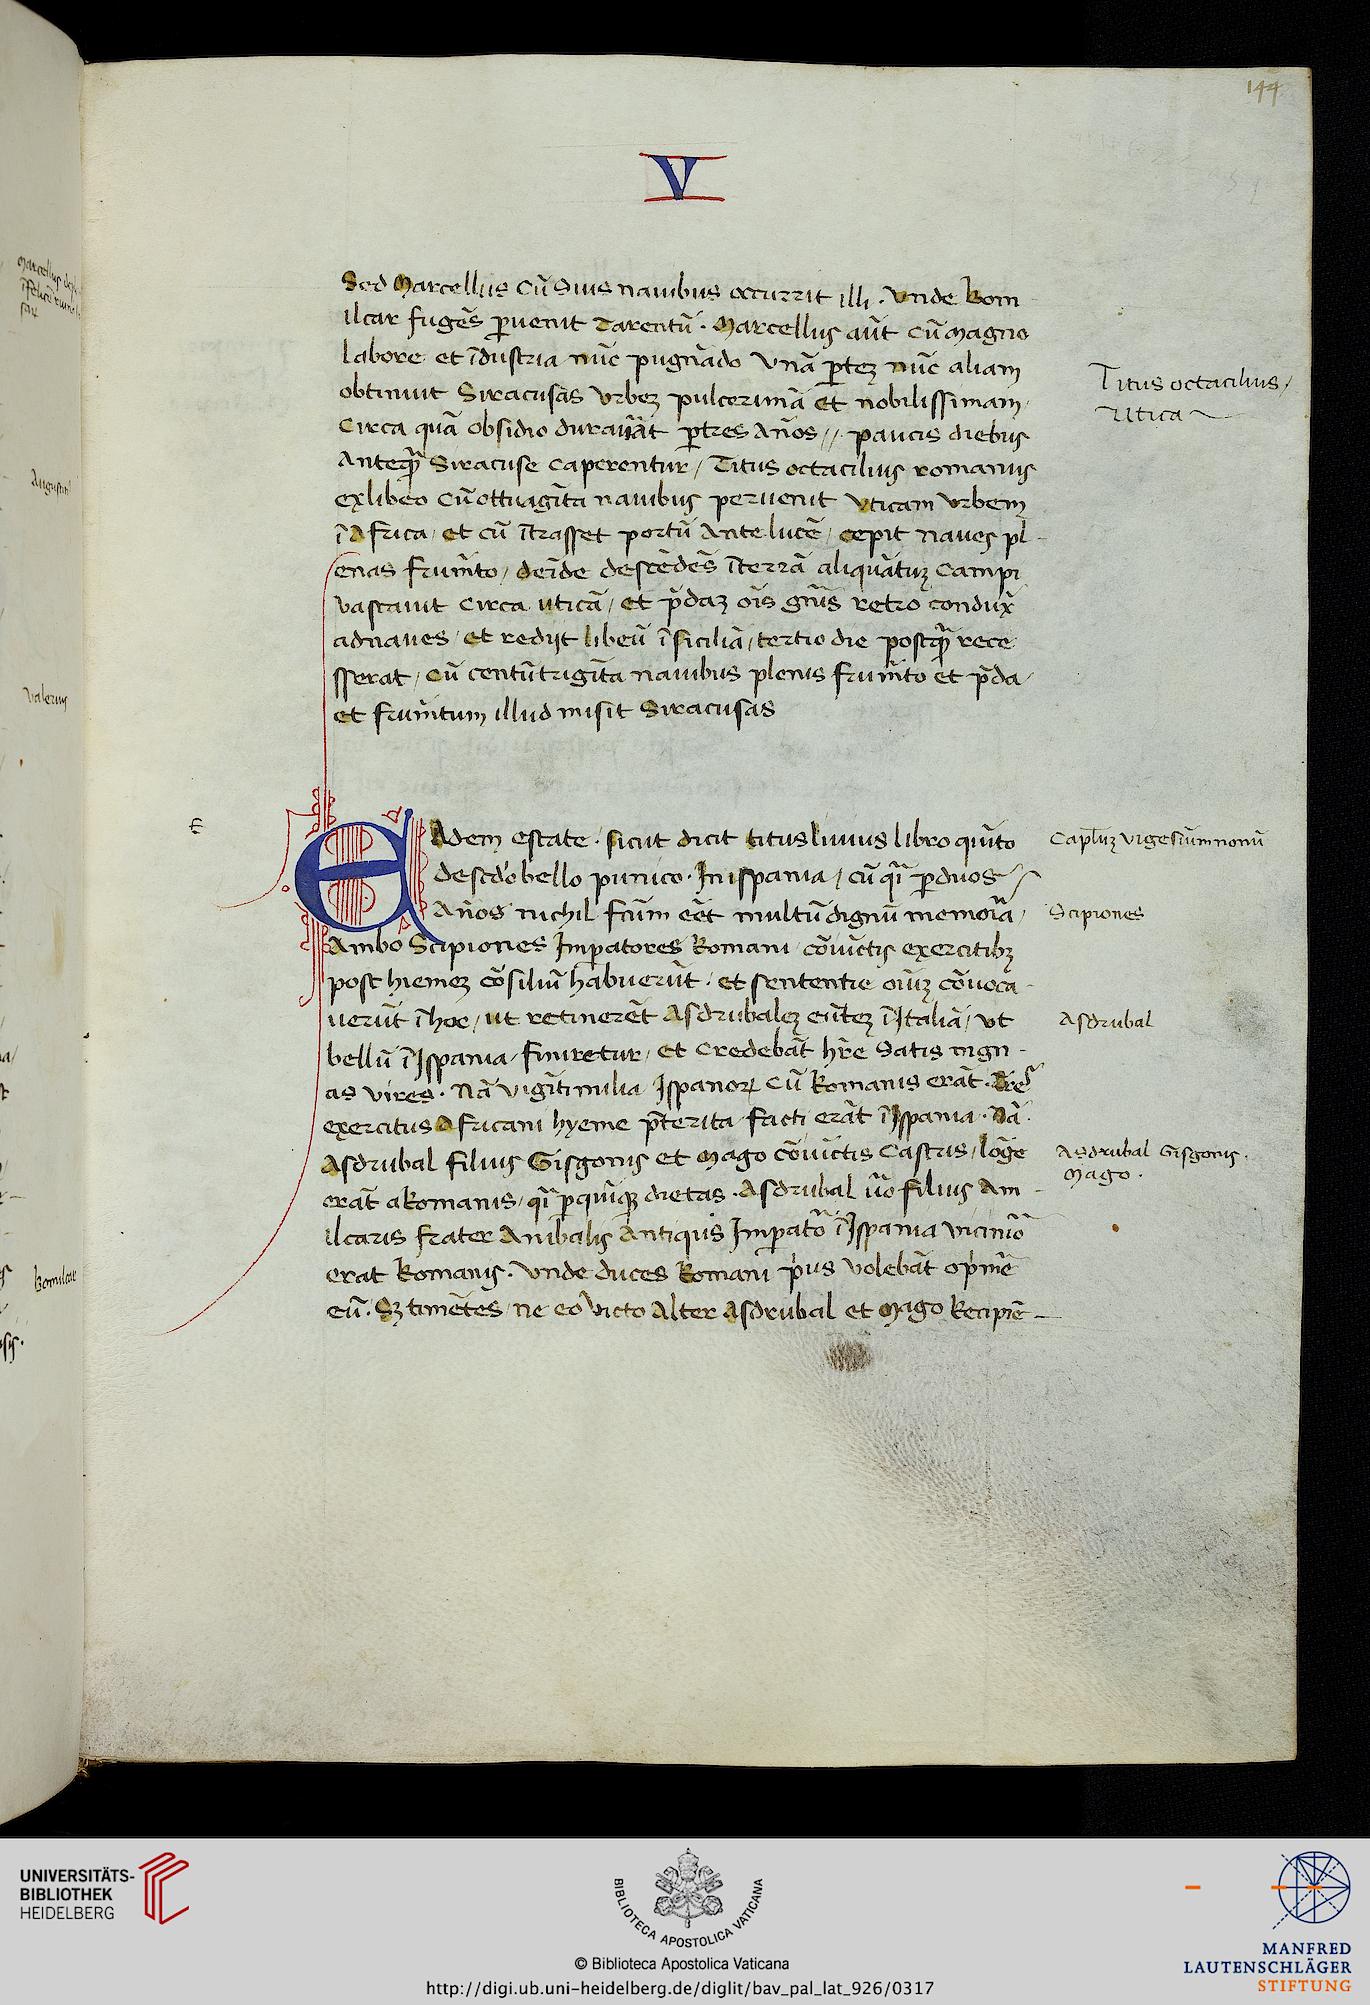 144
V
Sed Marcellus cũ Suis nauibus occurrit illi . Vnde Bom
ilcar fugẽs ꝑuenit Tarentũ . Marcellus aũt cũ magno
labore et ĩdustria nũc pugnãdo Vnã ꝑteꝫ nũc aliam
obtinuit Siracusas Vrbeꝫ pulcerimã et nobilissimam
Circa quã obsidio durau͂ãt ꝑ tres Años // paucis diebus
Anteq̃ Siracuse caperentur / Titus octacilius romanus
ex libeo cũ ottuagĩta nauibus peruenit Vticam Vrbem
ĩ Africa / et cũ ĩtrasset portũ Ante lucẽ / cepit naues pl
enas frum̃to / deĩde descẽdẽs ĩ terrã aliquãtuꝫ campi
Vastauit circa uticã / et p̃daꝫ oı̃s gñis retro condux̃
ad naues / et redijt libeũ ĩ siciliã / tertio die postq̃ rece
sserat / cũ centũ trigĩta nauibus plenis frum̃to et p̃da /
et frum̃tum illud misit Siracusas
Titus octacilius /
Utica
EAdem estate . sicut dicit titus liuius libro quĩto
de scd̃o bello punico . In ispania / cũ q̃i ꝑ duos
Años nichil fc̃um eẽt multũ dignũ memoı̃a /
Ambo Scipiones Imꝑatores Romani cõuictis exercitibꝫ
post hiemeꝫ cõsiliũ habuerũt . et sententie oı̃uꝫ cõuoca
uerũt ĩ hoc / ut retinerẽt Asdrubaleꝫ eũteꝫ ĩ Italiã / ut
bellũ ĩ Ispania / finiretur / et credebãt hr̃e Satis mgn
as vires . Nã vigĩti milia Ispanorꝝ cũ Romanis erãt . Tres
exercitus Africani hyeme p̃terita facti erãt ĩ Ispania . Nã
Asdrubal filius Gisgonis et Mago cõuictis castris / lõge
erãt a Romanis / q̃i ꝑ quĩqꝫ dietas . Asdrubal ũo filius Am
ilcaris frater Anibalis Antiquis Imꝑator̃ ĩ Ispania vicinior̃
erat Romanis . Vnde duces Romani p̃us volebãt opim̃e
eũ . Sꝫ timẽtes / ne eo victo Alter Asdrubal et Mago Recipiẽ
Capl̃uꝫ vigesiũm nonũ
Scipiones
Asdrubal
Asdrubal Gisgonis .
Mago .
Augusti
Valerius
Bomilcar
UNIVERSITÄTS-
BIBLIOTHEK
HEIDELBERG
BIBLIOTECA APOSTOLICA VATICANA
© Biblioteca Apostolica Vaticana
http://digi.ub.uni-heidelberg.de/diglit/bav_pal_lat_926/0317
MANFRED
LAUTENSCHLÄGER
STIFTUNG